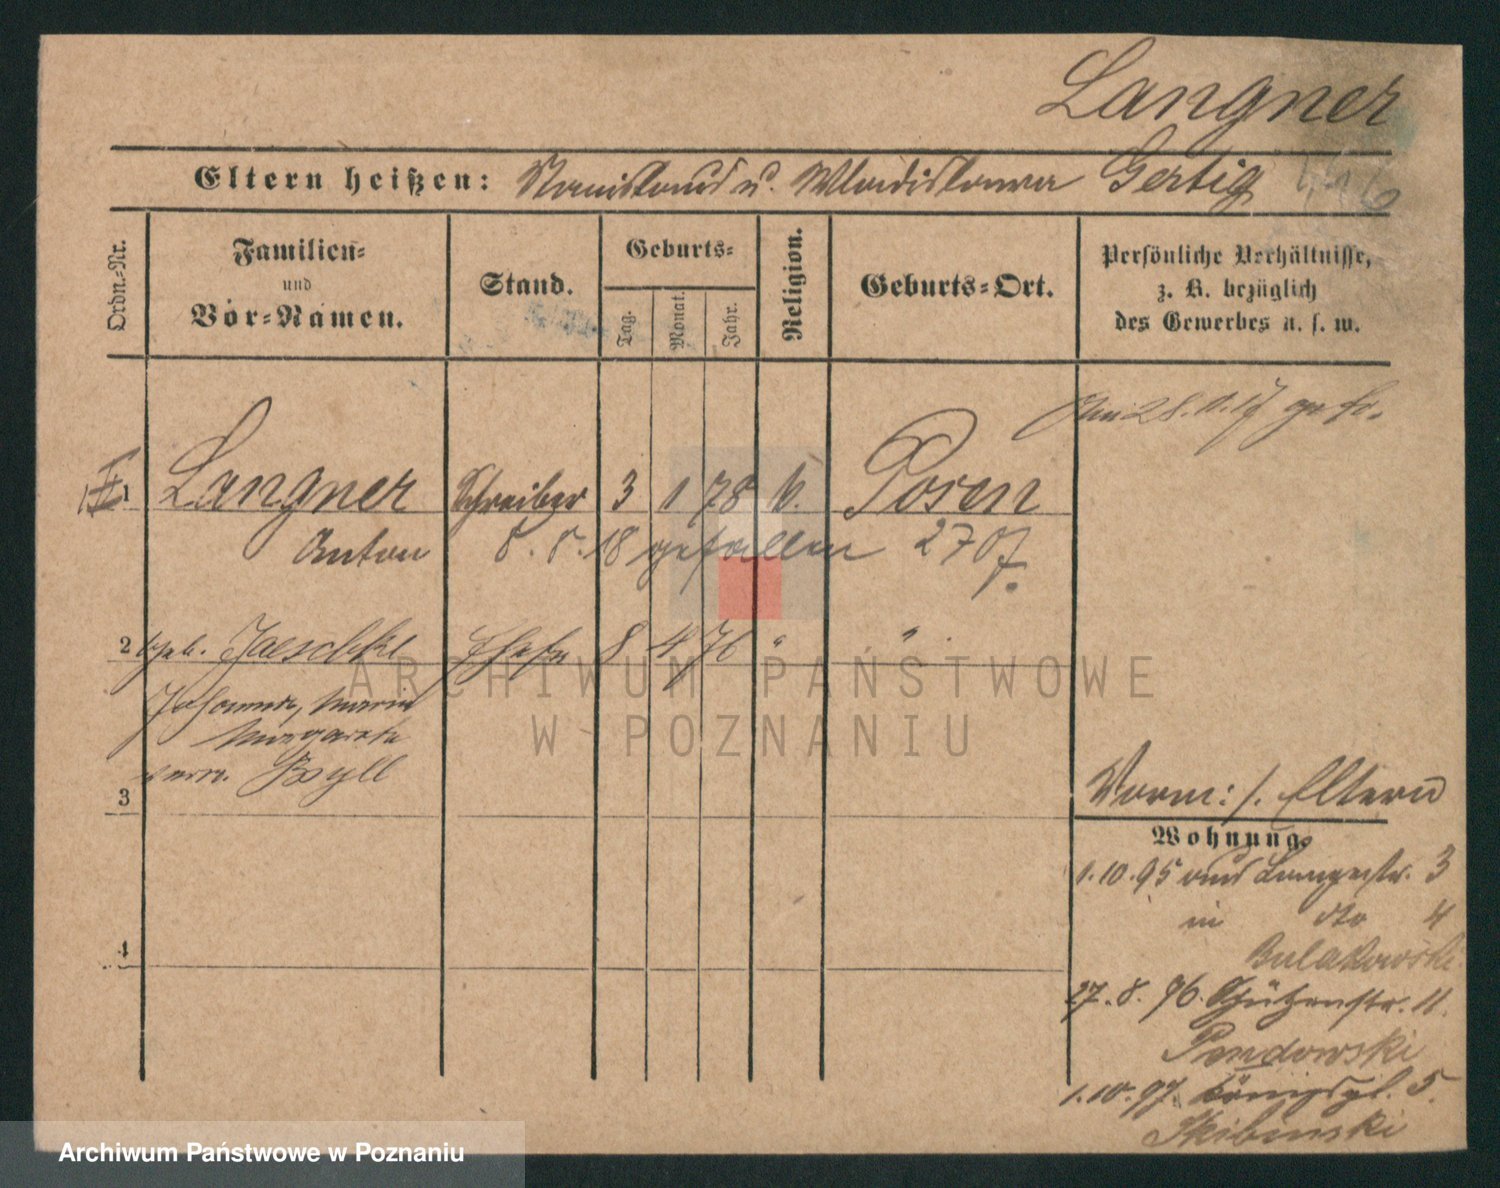 Langner
Eltern heißen: Stanislaus u. Wladislawa Gertig
Ordn.-Nr.
Familien-
und
Vor-Namen.
Stand.
Geburts-
Tag.
Monat.
Jahr.
Religion.
Geburts-Ort.
Persönliche Verhältnisse,
z. B. bezüglich
des Gewerbes u. s. w.
1 Langner Schreiber 3 1 78 k. Posen
Anton 8. 8. 18 gefallen 2707.
2 geb. Jaeschke Ehefr 8 4 76 " "
Johanna, Maria
Margareta
verw. Byll
3
4
Vorm: s. Eltern
Wohnung.
1.10.95 aus Langestr. 3
in dto 4
Bulakowski
27.8.96. Schützenstr. 11.
Pendowski
1.10.97. Königspl. 5.
Skibinski
ARCHIWUM PAŃSTWOWE
W POZNANIU
Archiwum Państwowe w Poznaniu